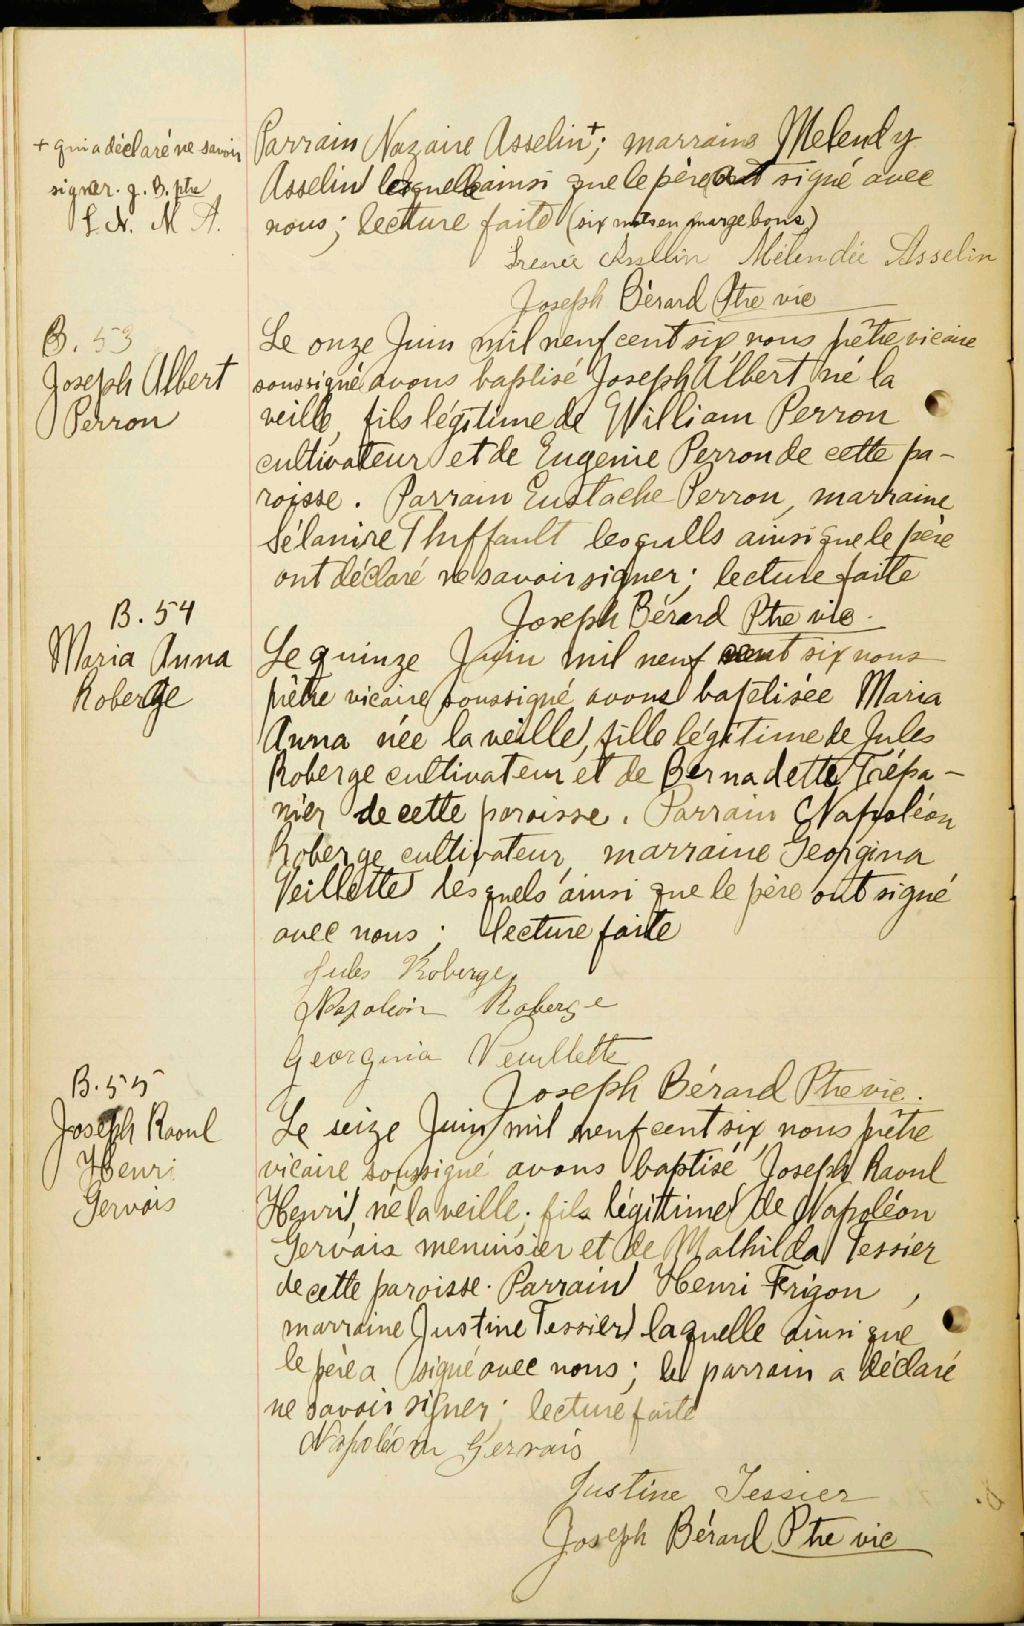 + qui a déclaré ne savoir
signer. J. B. ptre
L. N. M. A.
Parrain Nazaire Asselin+; marraine Melendy
Asselin laquelle ainsi que le père ont signé avec
nous; lecture faite (six mots en marge bons)
Irenée Asselin Mélendée Asselin
Joseph Bérard Ptre vic
B. 53
Joseph Albert
Perron
Le onze Juin mil neuf cent six nous prêtre vicaire
soussigné avons baptisé Joseph Albert né la
veille, fils légitime de William Perron
cultivateur et de Eugenie Perron de cette pa-
roisse. Parrain Eustache Perron, marraine
Sélanire Thiffault lesquells ainsi que le père
ont déclaré ne savoir signer; lecture faite
Joseph Bérard Ptre vic.
B. 54
Maria Anna
Roberge
Le quinze Juin mil neuf cent six nous
prêtre vicaire soussigné avons baptisée Maria
Anna née la veille, fille légitime de Jules
Roberge cultivateur et de Bernadette Trépa-
nier de cette paroisse. Parrain Napoléon
Roberge cultivateur, marraine Georgina
Veillette lesquels ainsi que le père ont signé
avec nous; lecture faite
Jules Roberge
Napoléon Roberge
Georginia Veuillette
Joseph Bérard Ptre vic.
B. 55
Joseph Raoul
Henri
Gervais
Le seize Juin mil neuf cent six, nous prêtre
vicaire soussigné avons baptisé Joseph Raoul
Henri, né la veille, fils légittime de Napoléon
Gervais menuisier et de Mathilda Tessier
de cette paroisse. Parrain Henri Frigon,
marraine Justine Tessier laquelle ainsi que
le père a signé avec nous; le parrain a déclaré
ne savoir signer; lecture faite
Napoléon Gervais
Justine Tessier
Joseph Bérard Ptre vic